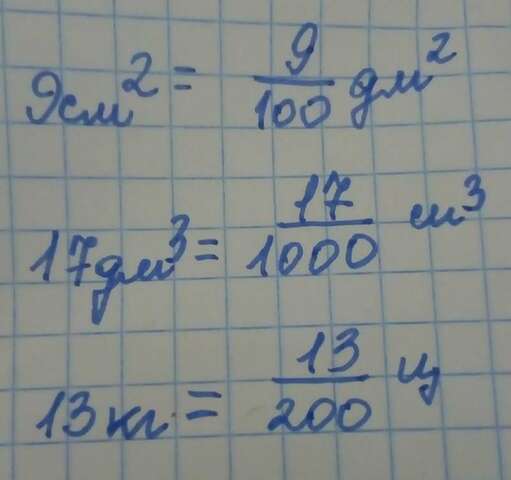 9см² = 9/100 дм²
17дм³ = 17/1000 м³
13кг = 13/200 ц